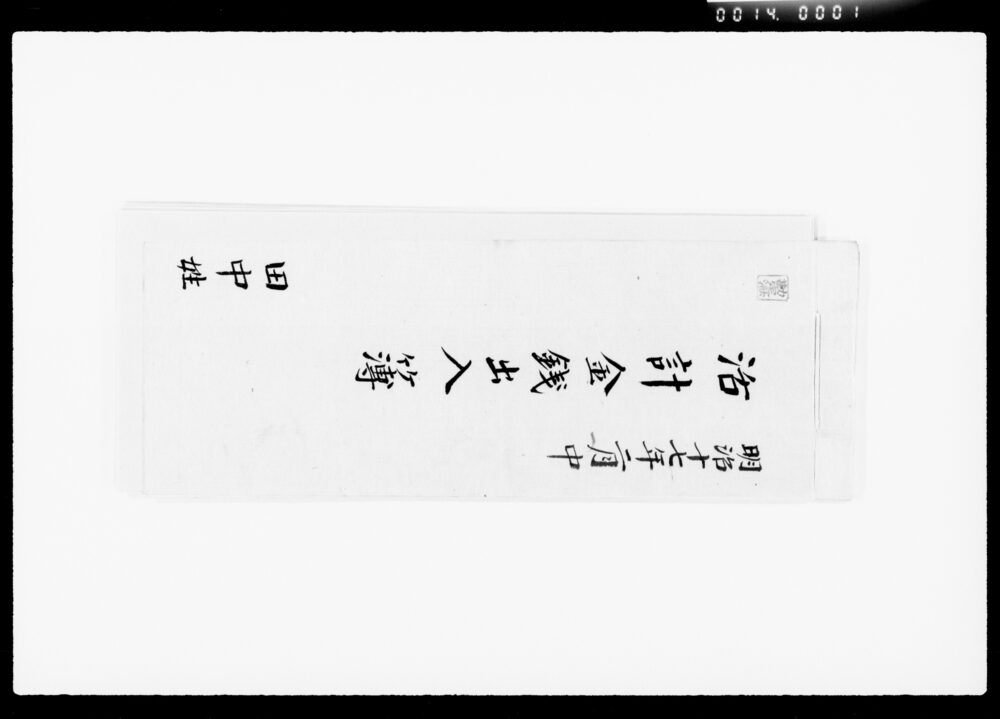 0014. 0001
明治十七年一月中
活計金銭出入簿
田中姓